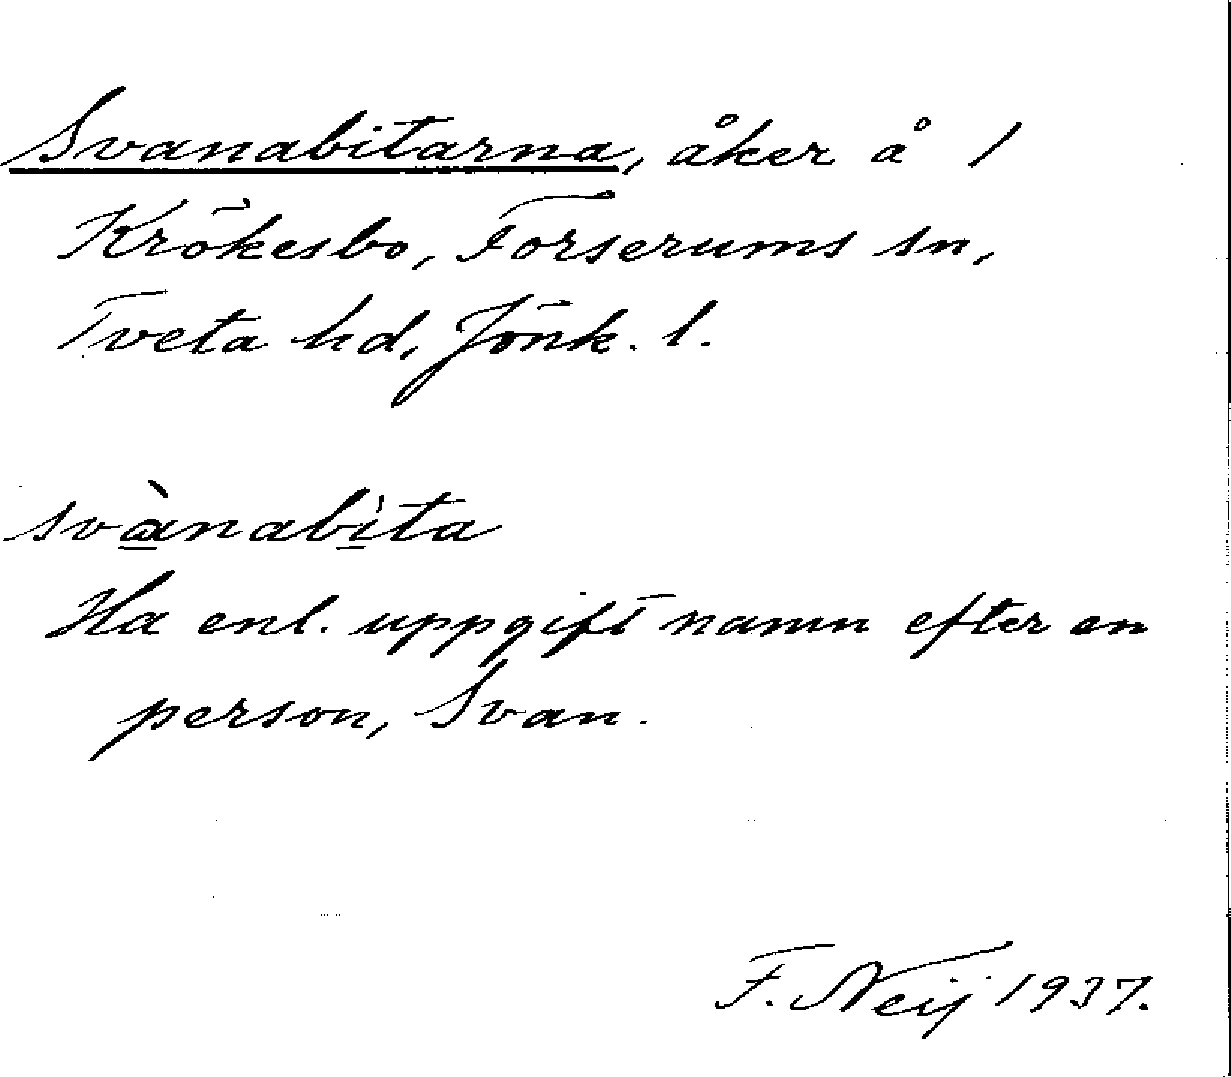 Svanabitarna, åker å 1
Krökesbo, Forserums sn,
Tveta hd, Jönk. l.
svànabìta
Ha enl. uppgift namn efter en
person, Svan.
F. Neij 1937.